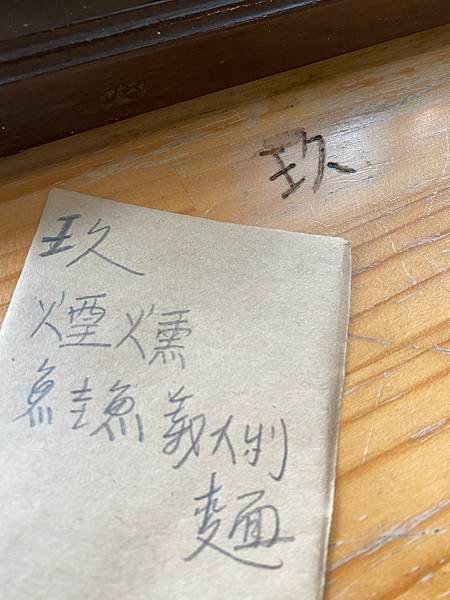 玖
玖
煙燻
鮭魚義大利
麵